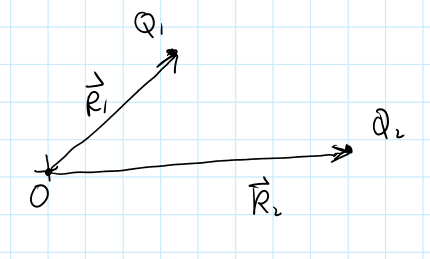 Q₁
R⃗₁
Q₂
O
R⃗₂